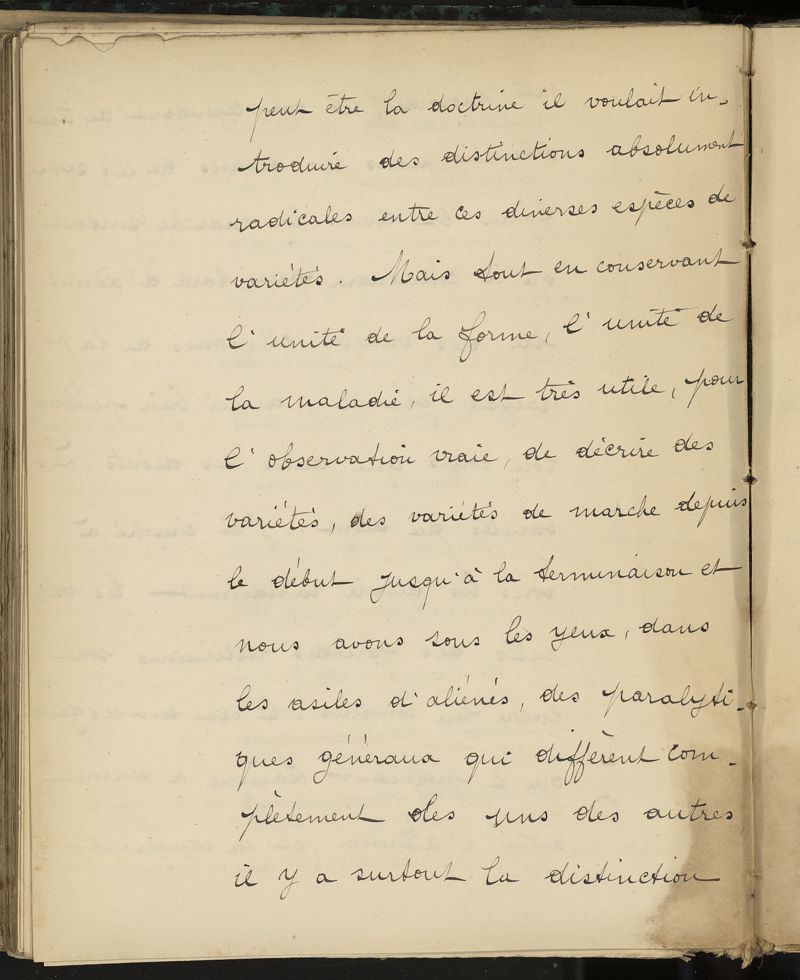 peut être la doctrine il voulait in-
troduire des distinctions absolument
radicales entre ces diverses espèces de
variétés. Mais tout en conservant
l'unité de la forme, l'unité de
la maladie, il est très utile, pour
l'observation vraie, de décrire des
variétés, des variétés de marche depuis
le début jusqu'à la terminaison et
nous avons sous les yeux, dans
les asiles d'aliénés, des paralyti-
ques généraux qui diffèrent com-
plètement des uns des autres,
il y a surtout la distinction